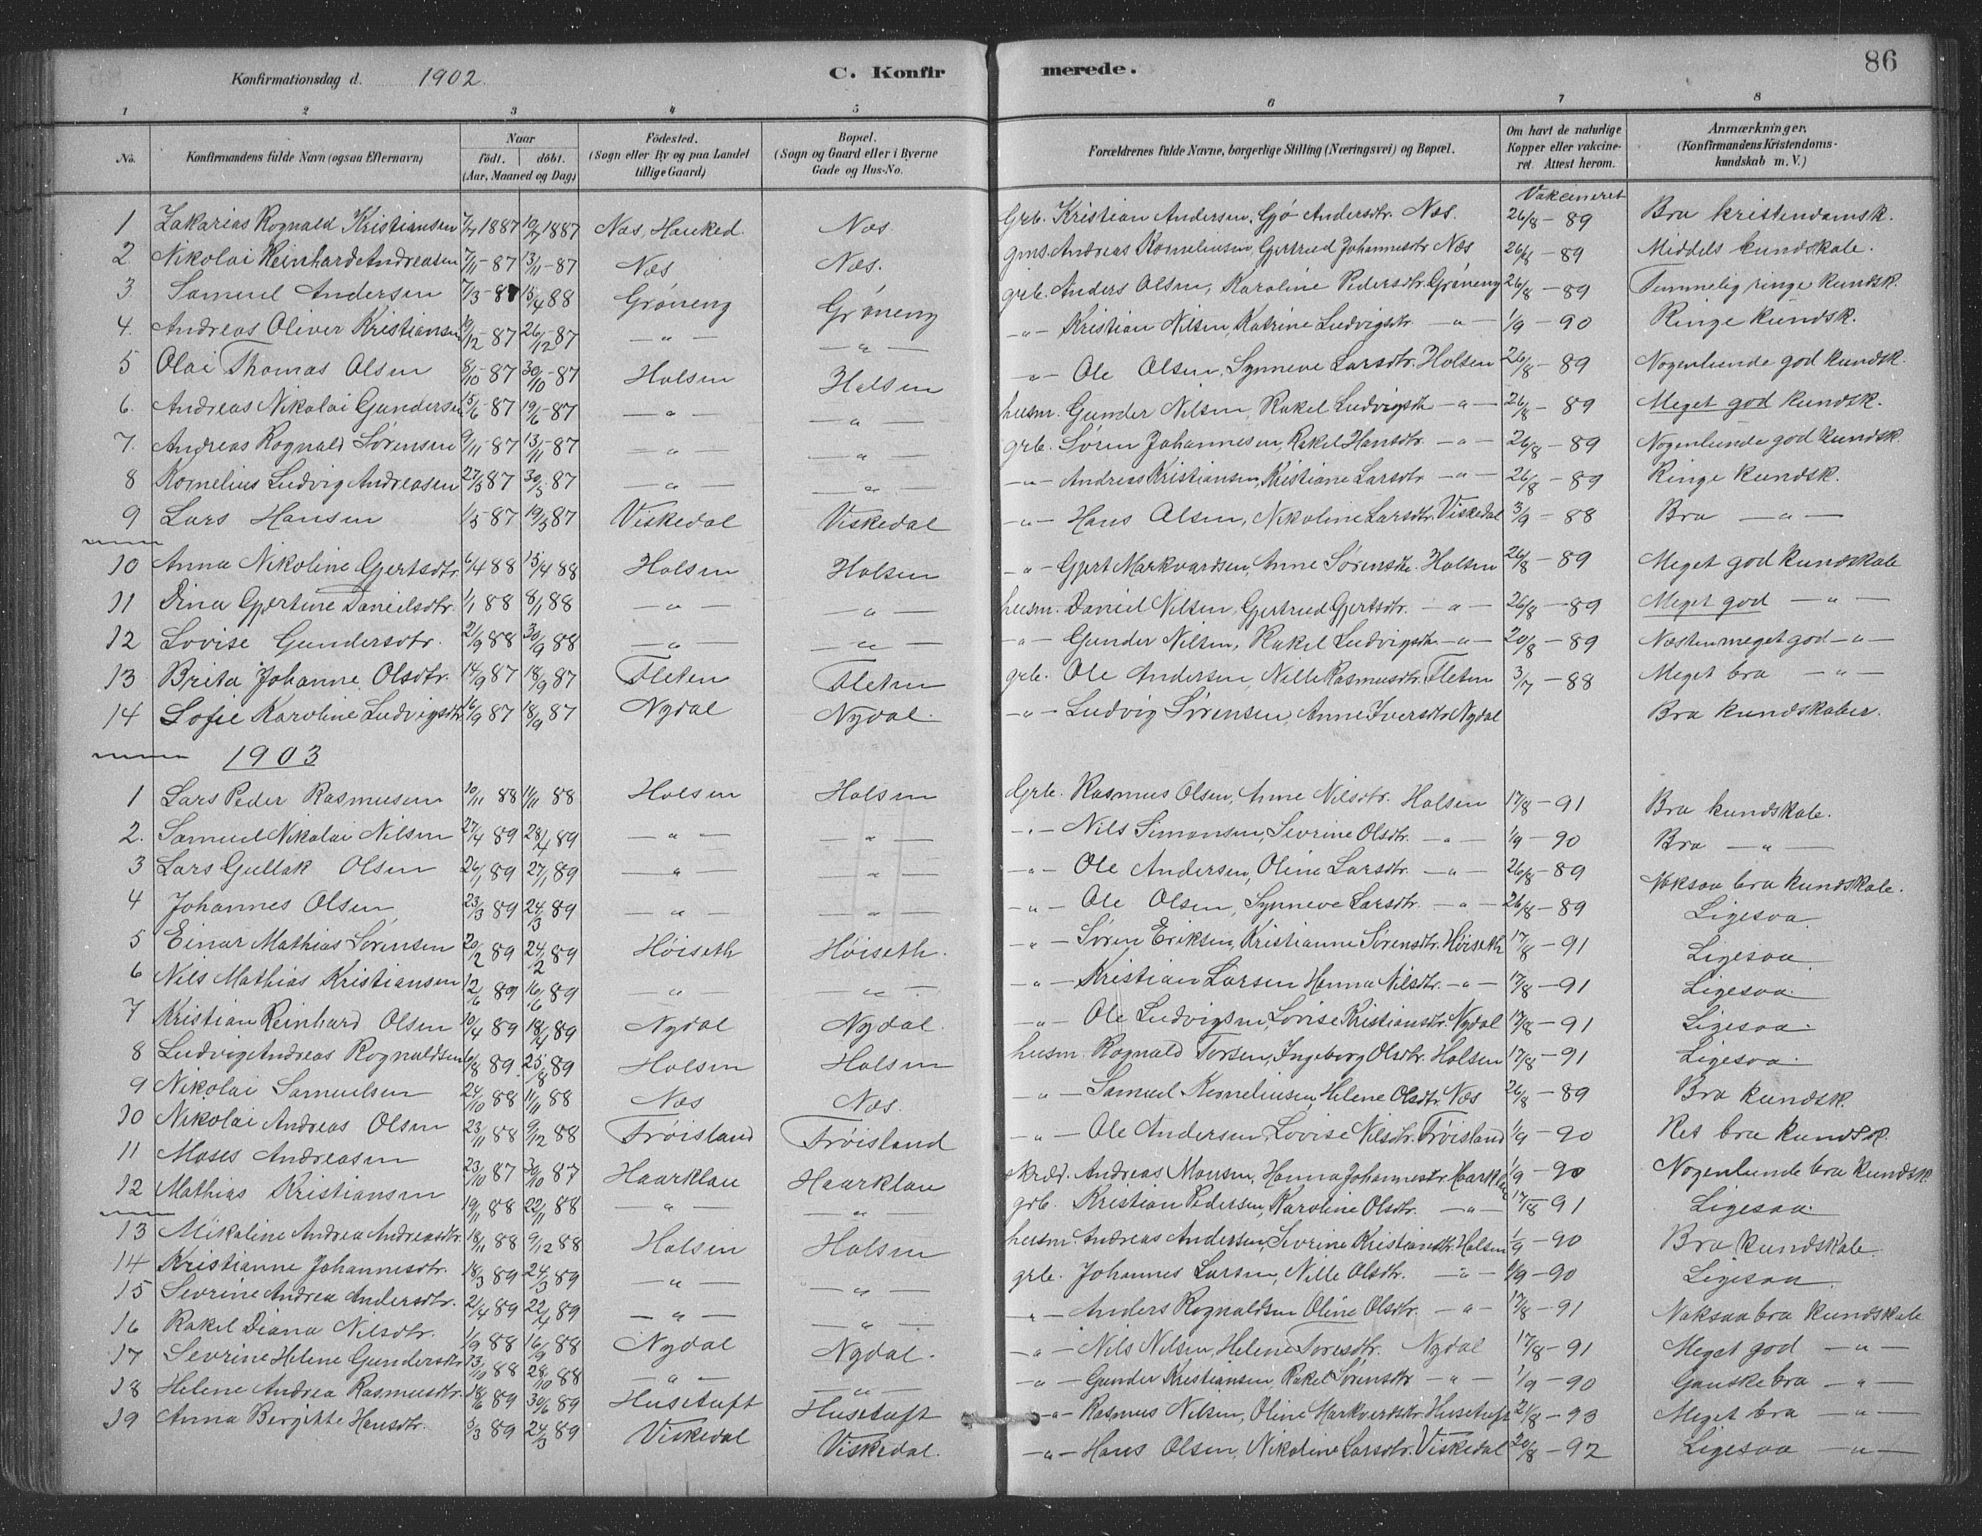 86
Konfirmationsdag d. 1902.
C. Konfirmerede.
1 2 3 4 5 6 7 8
No. Konfirmandens fulde Navn (ogsaa Efternavn) Naar født. døbt. (Aar, Maaned og Dag) Fødested. (Sogn eller By og paa Landet tillige Gaard) Bopæl. (Sogn og Gaard eller i Byerne Gade og Hus-No. Forældrenes fulde Navne, borgerlige Stilling (Næringsvei) og Bopæl. Om havt de naturlige Kopper eller vaccineret. Attest herom. Anmærkninger. (Konfirmandens Kristendomskundskab m. V.)
Vakcineret
1 Zakarias Rognald Kristiansen 7/7 1887 10/7 1887 Næs, Hauked. Næs. Grb. Kristian Andersen, Gjø Andersdtr. Næs. 26/8 - 89 Bra kristendomsk.
2 Nikolai Reinhard Andreasen 7/11 - 87 13/11 - 87 Næs Næs. gms. Andreas Korneliussen, Gjertrud Johannesdtr Næs 26/8 - 89 Middels kundskab.
3 Samuel Andersen 7/3 - 88 15/4 88 Grøneng Grøneng grb. Anders Olsen, Karoline Pedersdtr. Grøneng 26/8 - 89 Temmelig ringe kundsk.
4. Andreas Oliver Kristiansen 10/12 - 87 26/12 87 — „ — — „ — - „ - Kristian Nilsen, Katrine Ludvigsdtr — „ — 1/9 - 90 Ringe kundsk.
5 Olai Thomas Olsen 8/10 - 87 30/10 - 87 Holsen Holsen - „ - Ole Olsen, Synneve Larsdtr. Holsen 26/8 - 89 Nogenlunde god kundsk.
6. Andreas Nikolai Gundersen 15/6 - 87 19/6 - 87 — „ — — „ — husm. Gunder Nilsen, Rakel Ludvigsdtr — „ — 26/8 - 89 Meget god kundsk.
7. Andreas Rognald Sørensen 9/11 - 87 13/11 - 87 — „ — — „ — grb. Søren Johannesen, Rakel Hansdtr. — „ — 26/8 - 89 Nogenlunde god kundsk.
8 Kornelius Ludvig Andreasen 27/3 87 30/3 - 87 — „ — — „ — - „ - Andreas Kristiansen, Kristiane Larsdtr — „ — 26/8 - 89 Ringe kundsk.
9 Lars Hansen 1/5 - 87 19/5 87 Viskedal Viskedal - „ - Hans Olsen, Nikoline Larsdtr. Viskedal 3/9 - 88 Bra — „ —
10 Anna Nikoline Gjertsdtr. 6/4 88 15/4 88 Holsen Holsen - „ - Gjert Markvardsen, Anne Sørensdtr. Holsen 26/8 - 89 Meget god kundskab
11 Dina Gjertine Danielsdtr. 1/1 88 8/1 88 — „ — — „ — husm. Daniel Nilsen, Gjertrud Gjertsdtr. — „ — 26/8 - 89 Meget god — „ —
12 Lovise Gundersdtr. 21/9 88 30/9 88 — „ — — „ — - „ - Gunder Nilsen, Rakel Ludvigsdtr — „ — 20/8 - 89 Næsten meget god — „ —
13 Brita Johanne Olsdtr. 14/9 87 18/9 87 Fleten Fleten grb. Ole Andersen, Nille Rasmusdtr. Fleten 3/7 - 88 Meget bra — „ —
14 Sofie Karoline Ludvigsdtr. 16/9 87 18/9 87 Nydal Nydal. - „ - Ludvig Sørensen, Anne Iversdtr Nydal Bra kundskaber.
1903
1 Lars Peder Rasmusen 10/11 88 11/11 88 Holsen Holsen Grb. Rasmus Olsen, Anne Nilsdtr. Holsen 17/8 - 91 Bra kundskab.
2. Samuel Nikolai Nilsen 27/4 89 28/4 89 — „ — — „ — - „ - Nils Simonsen, Sevrine Olsdtr. — „ — 1/9 - 90 Bra — „ —
3 Lars Gullak Olsen 26/1 89 27/1 89 — „ — — „ — - „ - Ole Andersen, Oline Larsdtr. — „ — 26/8 - 89 Noksaa bra kundskab.
4 Johannes Olsen 23/3 89 24/3 89 — „ — — „ — - „ - Ole Olsen, Synneve Larsdtr. — „ — 26/8 - 89 Ligesaa
5 Einar Mathias Sørensen 20/2 89 24/2 89 Høiseth Høiseth. - „ - Søren Eriksen, Kristianne Sørensdtr. Høiseth 17/8 - 91 Ligesaa
6 Nils Mathias Kristiansen 12/6 89 16/6 89 — „ — — „ — - „ - Kristian Larsen Hanna Nilsdtr. — „ — 17/8 - 91 Ligesaa.
7 Kristian Reinhard Olsen 10/4 89 18/4 89 Nydal Nydal. - „ - Ole Ludvigsen, Lovise Kristiansdtr. Nydal 17/8 - 91 Ligesaa.
8 Ludvig Andreas Rognaldsen 16/8 89. 25/8 89 Holsen Holsen husm. Rognald Torsen, Ingeborg Olsdtr. Holsen 17/8 - 91 Ligesaa.
9 Nikolai Samuelsen 24/10 88 11/11 88 Næs Næs. - „ - Samuel Korneliussen Helene Olsdtr. Næs 26/8 - 89 Bra kundsk.
10 Nikolai Andreas Olsen 23/11 88 9/12 88 Frøisland Frøisland - „ - Ole Andersen, Lovise Nilsdtr. Frøisland 1/9 - 90 Ret bra kundsk.
11 Moses Andreasen 23/10 87 30/10 87 Haarklau Haarklau skræd. Andreas Monsen, Hanna Johannesdtr. Haarklau 1/9 - 90 Nogenlunde bra kundsk.
12 Mathias Kristiansen 19/11 88 22/11 88 — „ — — „ — grb. Kristian Pedersen, Karoline Olsdtr. — „ — 17/8 - 91 Ligesaa.
13 Mikaline Andrea Andreasdtr. 18/11 88 9/12 88 Holsen Holsen husm. Andreas Andersen, Sevrine Kristiansdtr. Holsen 1/9 - 90 Bra kundskab.
14 Kristianne Johannesdtr. 18/3 89 24/3 89 — „ — — „ — grb. Johannes Larsen, Nille Olsdtr. — „ — 1/9 - 90 Ligesaa.
15 Sevrine Andrea Andersdtr. 21/4 89 22/4 89 — „ — — „ — - „ - Anders Rognaldsen Oline Olsdtr. — „ — 17/8 - 91 Noksaa bra kundskab
16 Rakel Diana Nilsdtr. 1/9 88 16/9 88 Nydal Nydal. - „ - Nils Nilsen, Helene Toresdtr. Nydal 17/8 - 91 Meget god — „ —
17 Sevrine Helene Gundersdtr 13/10 88 28/10 88 — „ — — „ — - „ - Gunder Kristiansen Rakel Sørensdtr — „ — 1/9 - 90 Ganske bra — „ —
18 Helene Andrea Rasmusdtr. 18/6 89 30/6 89 Husetuft Husetuft - „ - Rasmus Nilsen, Oline Markvardsdtr Husetuft 21/8 - 93 Meget bra — „ —
19 Anna Bergitte Hansdtr. 5/3 89 24/3 89 Viskedal Viskedal. - „ - Hans Olsen, Nikoline Larsdtr. Viskedal 20/8 - 92 Ligesaa — „ —